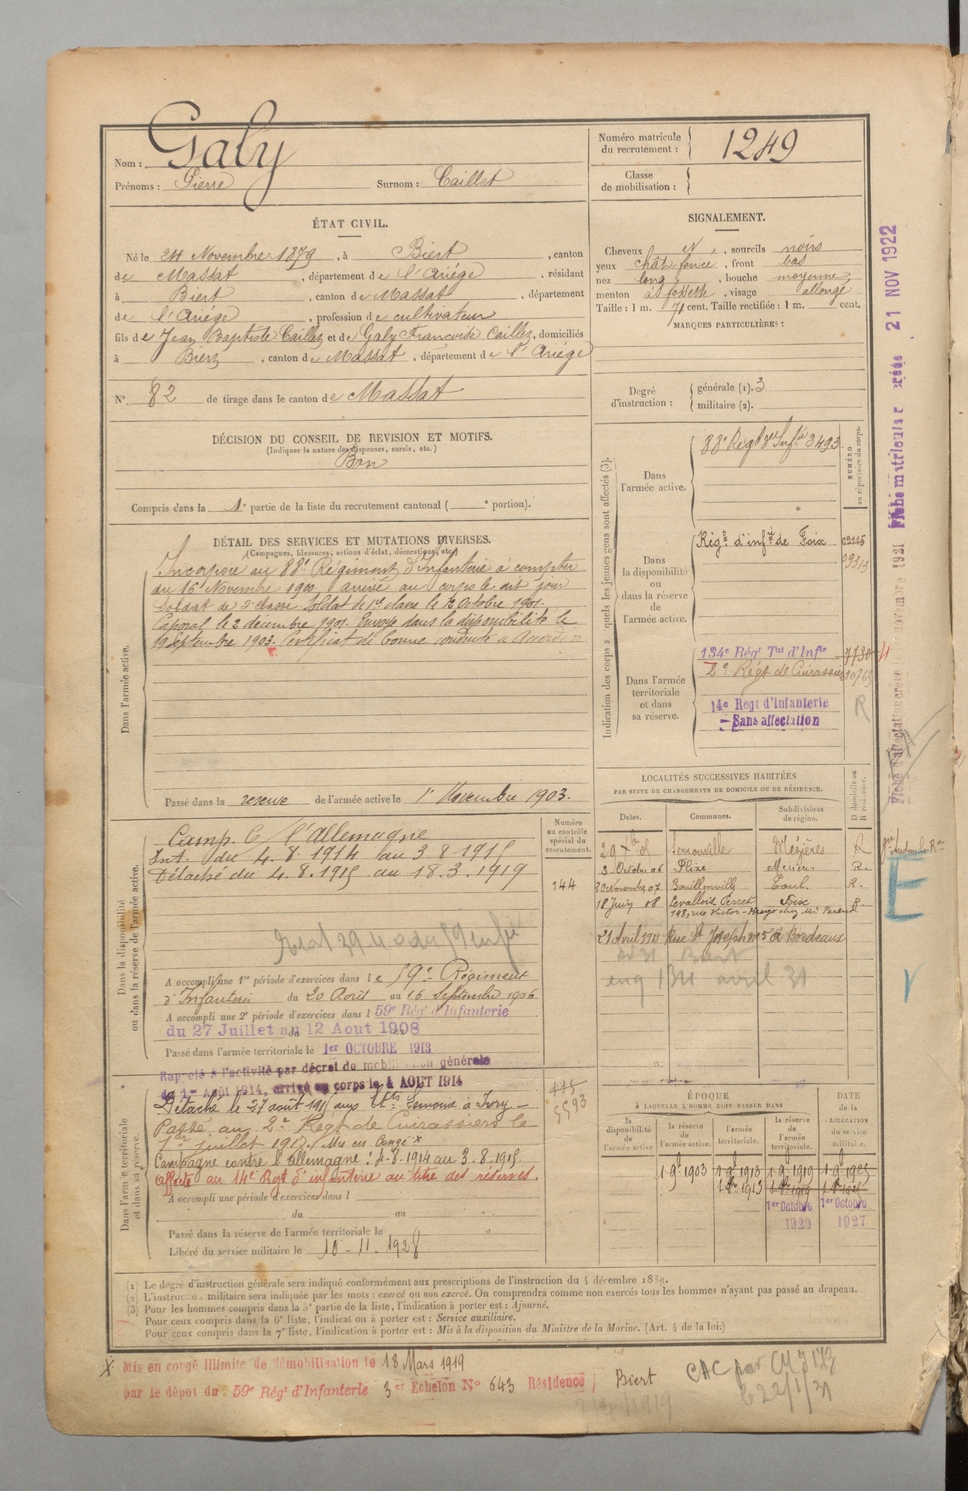 Nom : Galy
Prénoms : Pierre Surnom : Caillet
Numéro matricule du recrutement : 1249
Classe de mobilisation :
ÉTAT CIVIL.
Né le 24 Novembre 1879, à Biert, canton
de Massat, département de l'Ariége, résidant
à Biert, canton de Massat, département
de l'Ariége, profession de cultivateur
fils de Jean Baptiste Caillez et de Galy Francoise Caillez, domiciliés
à Biert, canton de Massat, département de l'Ariége
N° 82 de tirage dans le canton de Massat
DÉCISION DU CONSEIL DE REVISION ET MOTIFS.
(Indiquer la nature des dispenses, sursis, etc.)
Bon
Compris dans la 1e partie de la liste du recrutement cantonal ( e portion).
SIGNALEMENT.
Cheveux N, sourcils noirs
yeux chât foncé, front bas
nez long, bouche moyenne,
menton à fossette, visage allongé
Taille : 1 m. 71 cent. Taille rectifiée : 1 m. cent.
MARQUES PARTICULIÈRES :
Degré d'instruction : générale (1). 3
militaire (2).
DÉTAIL DES SERVICES ET MUTATIONS DIVERSES.
(Campagnes, blessures, actions d'éclat, décorations, etc.)
Dans l'armée active.
Incorporé au 88e Régiment d'Infanterie à compter
du 16 Novembre 1900, arrivé au corps le dit jour
Soldat de 2e classe. Soldat de 1re classe le 12 Octobre 1901.
Caporal le 2 décembre 1901. Envoyé dans la disponibilité le
19 Septembre 1903. Certificat de bonne conduite "Accordé"
Passé dans la réserve de l'armée active le 1er Novembre 1903.
Indication des corps auxquels les jeunes gens sont affectés (3).
NUMÉRO au répertoire du corps.
Dans l'armée active.
88e Régt d'Infie 3493
Dans la disponibilité ou dans la réserve de l'armée active.
Régt d'infie de Foix
Dans l'armée territoriale et dans sa réserve.
134e Régt Tal d'Infie 7730
2e Régt de Cuirassiers
14e Regt d'Infanterie
- Sans affectation
R
LOCALITÉS SUCCESSIVES HABITÉES
PAR SUITE DE CHANGEMENTS DE DOMICILE OU DE RÉSIDENCE.
Dates. Communes. Subdivisions de région. D domicile ou R résidence.
Mézières R
3 Octobre 06 Flize Mézières R.
20 Novembre 07 Bouillonville Toul. R.
18 Juin 08 Levallois Perret Foix R.
198, rue Victor-Hugo chez Mr Parent
21 Avril 1920 Rue St Joseph n° 5 à Bordeaux
Dans la disponibilité ou dans la réserve de l'armée active.
Numéro au contrôle spécial du recrutement.
144
Camp. C/ l'Allemagne
Int. du 4.8.1914 au 3.8.1915
Détaché du 4.8.1915 au 18.3.1919
A accompli une 1re période d'exercices dans le 59e Régiment
d'Infanterie du 20 Aout au 16 Septembre 1906
A accompli une 2e période d'exercices dans l 59e Régt d'Infanterie
du 27 Juillet au 12 Aout 1908
Passé dans l'armée territoriale le 1er OCTOBRE 1913
Rappelé à l'activité par décret de mobilisation générale
du 1er Août 1914, arrivé au corps le 4 AOUT 1914
Dans l'armée territoriale et dans sa réserve.
Détaché le 27 août 1915 aux Ets Lemoine à Ivry -
Passé au 2e Régt de Cuirassiers le
1er juillet 1917. Mis en Congé X
Campagne contre l'Allemagne : 4-8-1914 au 3.8.1915
Affecté au 14e Rgt d'infanterie au titre des réserves.
A accompli une période d'exercices dans l
du au
Passé dans la réserve de l'armée territoriale le
Libéré du service militaire le 10-11-1928
ÉPOQUE
À LAQUELLE L'HOMME DOIT PASSER DANS
la disponibilité de l'armée active.
la réserve de l'armée active.
l'armée territoriale.
la réserve de l'armée territoriale.
DATE de la LIBÉRATION du service militaire.
1 9e 1903 1 9e 1913 1 9e 1919 1 9e 1925
1er Octobre 1920 1er Octobre 1927
(1) Le degré d'instruction générale sera indiqué conformément aux prescriptions de l'instruction du 4 décembre 1889.
(2) L'instruction militaire sera indiquée par les mots : exercé ou non exercé. On comprendra comme non exercés tous les hommes n'ayant pas passé au drapeau.
(3) Pour les hommes compris dans la 5e partie de la liste, l'indication à porter est : Ajourné.
Pour ceux compris dans la 6e liste, l'indication à porter est : Service auxiliaire.
Pour ceux compris dans la 7e liste, l'indication à porter est : Mis à la disposition du Ministre de la Marine. (Art. 4 de la loi.)
X Mis en congé illimité de démobilisation le 18 Mars 1919
par le dépôt du : 59e Régt d'Infanterie 3er Echelon N° 643 Résidence Biert
21 NOV 1922
E